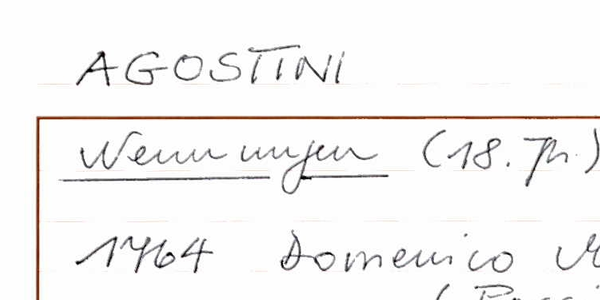 AGOSTINI
Wennungen (18. Jh.)
1764 Domenico